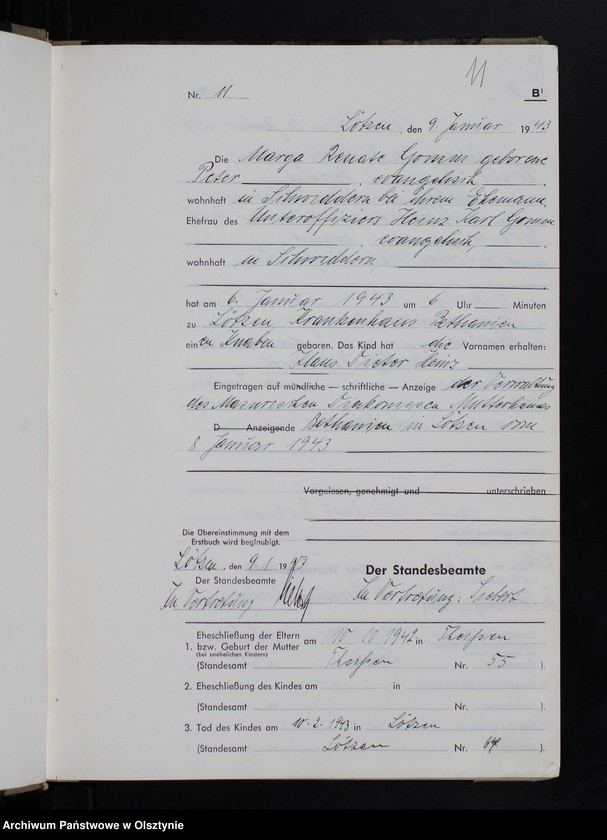 11
Nr. 11
B¹
Lötzen, den 9. Januar 1943
Die Marga Renate Gomm geborene
Peter, evangelisch
wohnhaft in Schwiddern bei ihrem Ehemann,
Ehefrau des Unteroffiziers Heinz Karl Gomm
evangelisch,
wohnhaft in Schwiddern,
hat am 6. Januar 1943 um 6 Uhr Minuten
zu Lötzen Krankenhaus Bethanien
einen Knaben geboren. Das Kind hat die Vornamen erhalten:
Klaus Dieter Heinz
Eingetragen auf mündliche — schriftliche — Anzeige der Verwaltung
des Masurischen Diakonissen Mutterhauses
D Anzeigende Bethanien in Lötzen vom
8 Januar 1943
Vorgelesen, genehmigt und unterschrieben
Die Übereinstimmung mit dem
Erstbuch wird beglaubigt.
Lötzen, den 9. 1. 1943
Der Standesbeamte
Der Standesbeamte
In Vertretung
In Vertretung: Siebert
Eheschließung der Eltern
1. bzw. Geburt der Mutter am 10. 10. 1942 in
(bei unehelichen Kindern)
(Standesamt Nr. 55 ).
2. Eheschließung des Kindes am in
(Standesamt Nr. ).
3. Tod des Kindes am 10. 2. 1943 in Lötzen
(Standesamt Lötzen Nr. ).
Archiwum Państwowe w Olsztynie